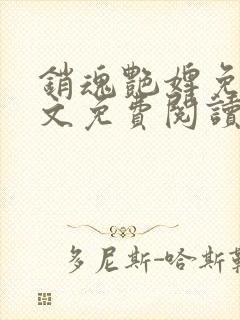 銷魂艷婢免
文免費閱讀
多尼斯-哈斯勒